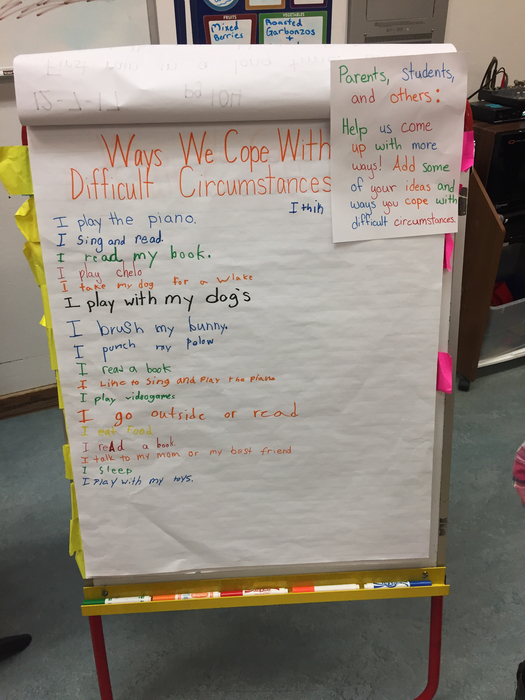 FRUITS
Mixed
Berries
VEGETABLES
Roasted
Garbonzos
+
Parents, Students,
and others:
Help us come
up with more
ways! Add some
of your ideas and
ways you cope with
difficult circumstances.
Ways We Cope With
Difficult Circumstances
I think
I play the piano.
I Sing and read.
I read my book.
I play chelo
I take my dog for a wlake
I play with my dog's
I brush my bunny.
I punch my polow
I read a book
I Like to Sing and Play the piano
I play videogames
I go outside or read
I eat food
I reAd a book
I talk to my mom or my best friend
I Sleep
I Play with my toys.